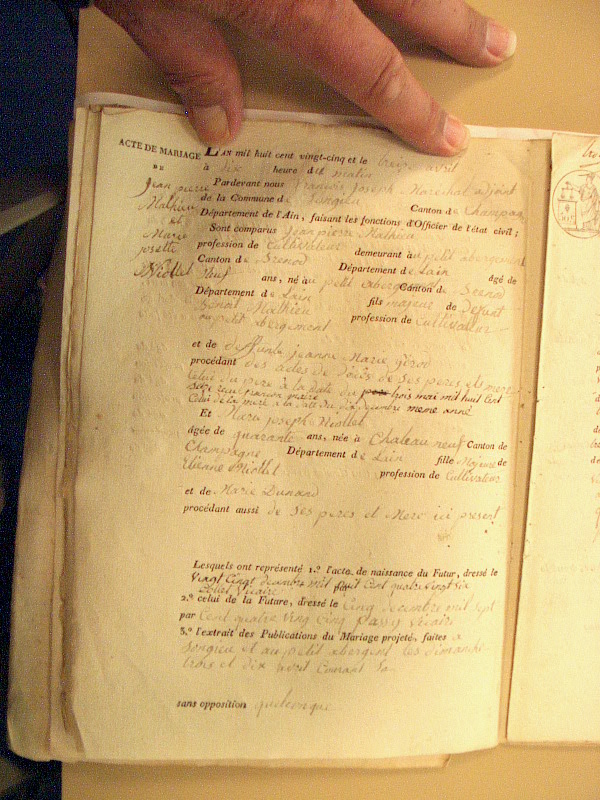 ACTE DE MARIAGE
DE
Jean pierre
Mathieu
et
Marie
josette
Niollet
L'AN mil huit cent vingt-cinq et le treize avril
à dix heure du matin
Pardevant nous françois Joseph Marechal adjoint
de la Commune de Songieu Canton de Champag
Département de l'Ain, faisant les fonctions d'Officier de l'état civil;
Sont comparus Jean pierre Mathieu
profession de Cultivateur demeurant au petit abergement
Canton de Brenod Département de Lain âgé de
neuf ans, né à u petit abergement Canton de Brenod
Département de Lain fils majeur de defunt
Benoit Mathieu profession de Cultivateur
au petit abergement
et de defunte jeanne Marie
procédant des actes de décès de ses peres et mere
Celui du pere à la date du trois mai mil huit cent
Celui de la mere à la date du dix decembre meme anné
Et Marie joseph Niollet
âgée de quarante ans, née à Chateau neuf Canton de
Champagne Département de Lain fille Majeure de
Etienne Niollet profession de Cultivateur
et de Marie Dunand
procédant aussi de ses peres et Mere ici present
Lesquels ont représenté 1.° l'acte de naissance du Futur, dressé le
Vingt Cinq decembre mil Cent quatre vingt six
par Vicaire
2.° celui de la Future, dressé le Cinq decembre mil sept
par Cent quatre Ving cinq passy Vicaire
3.° l'extrait des Publications du Mariage projeté, faites a
Songieu et au petit abergent les dimanche
trois et dix avril Courant
sans opposition quelconque